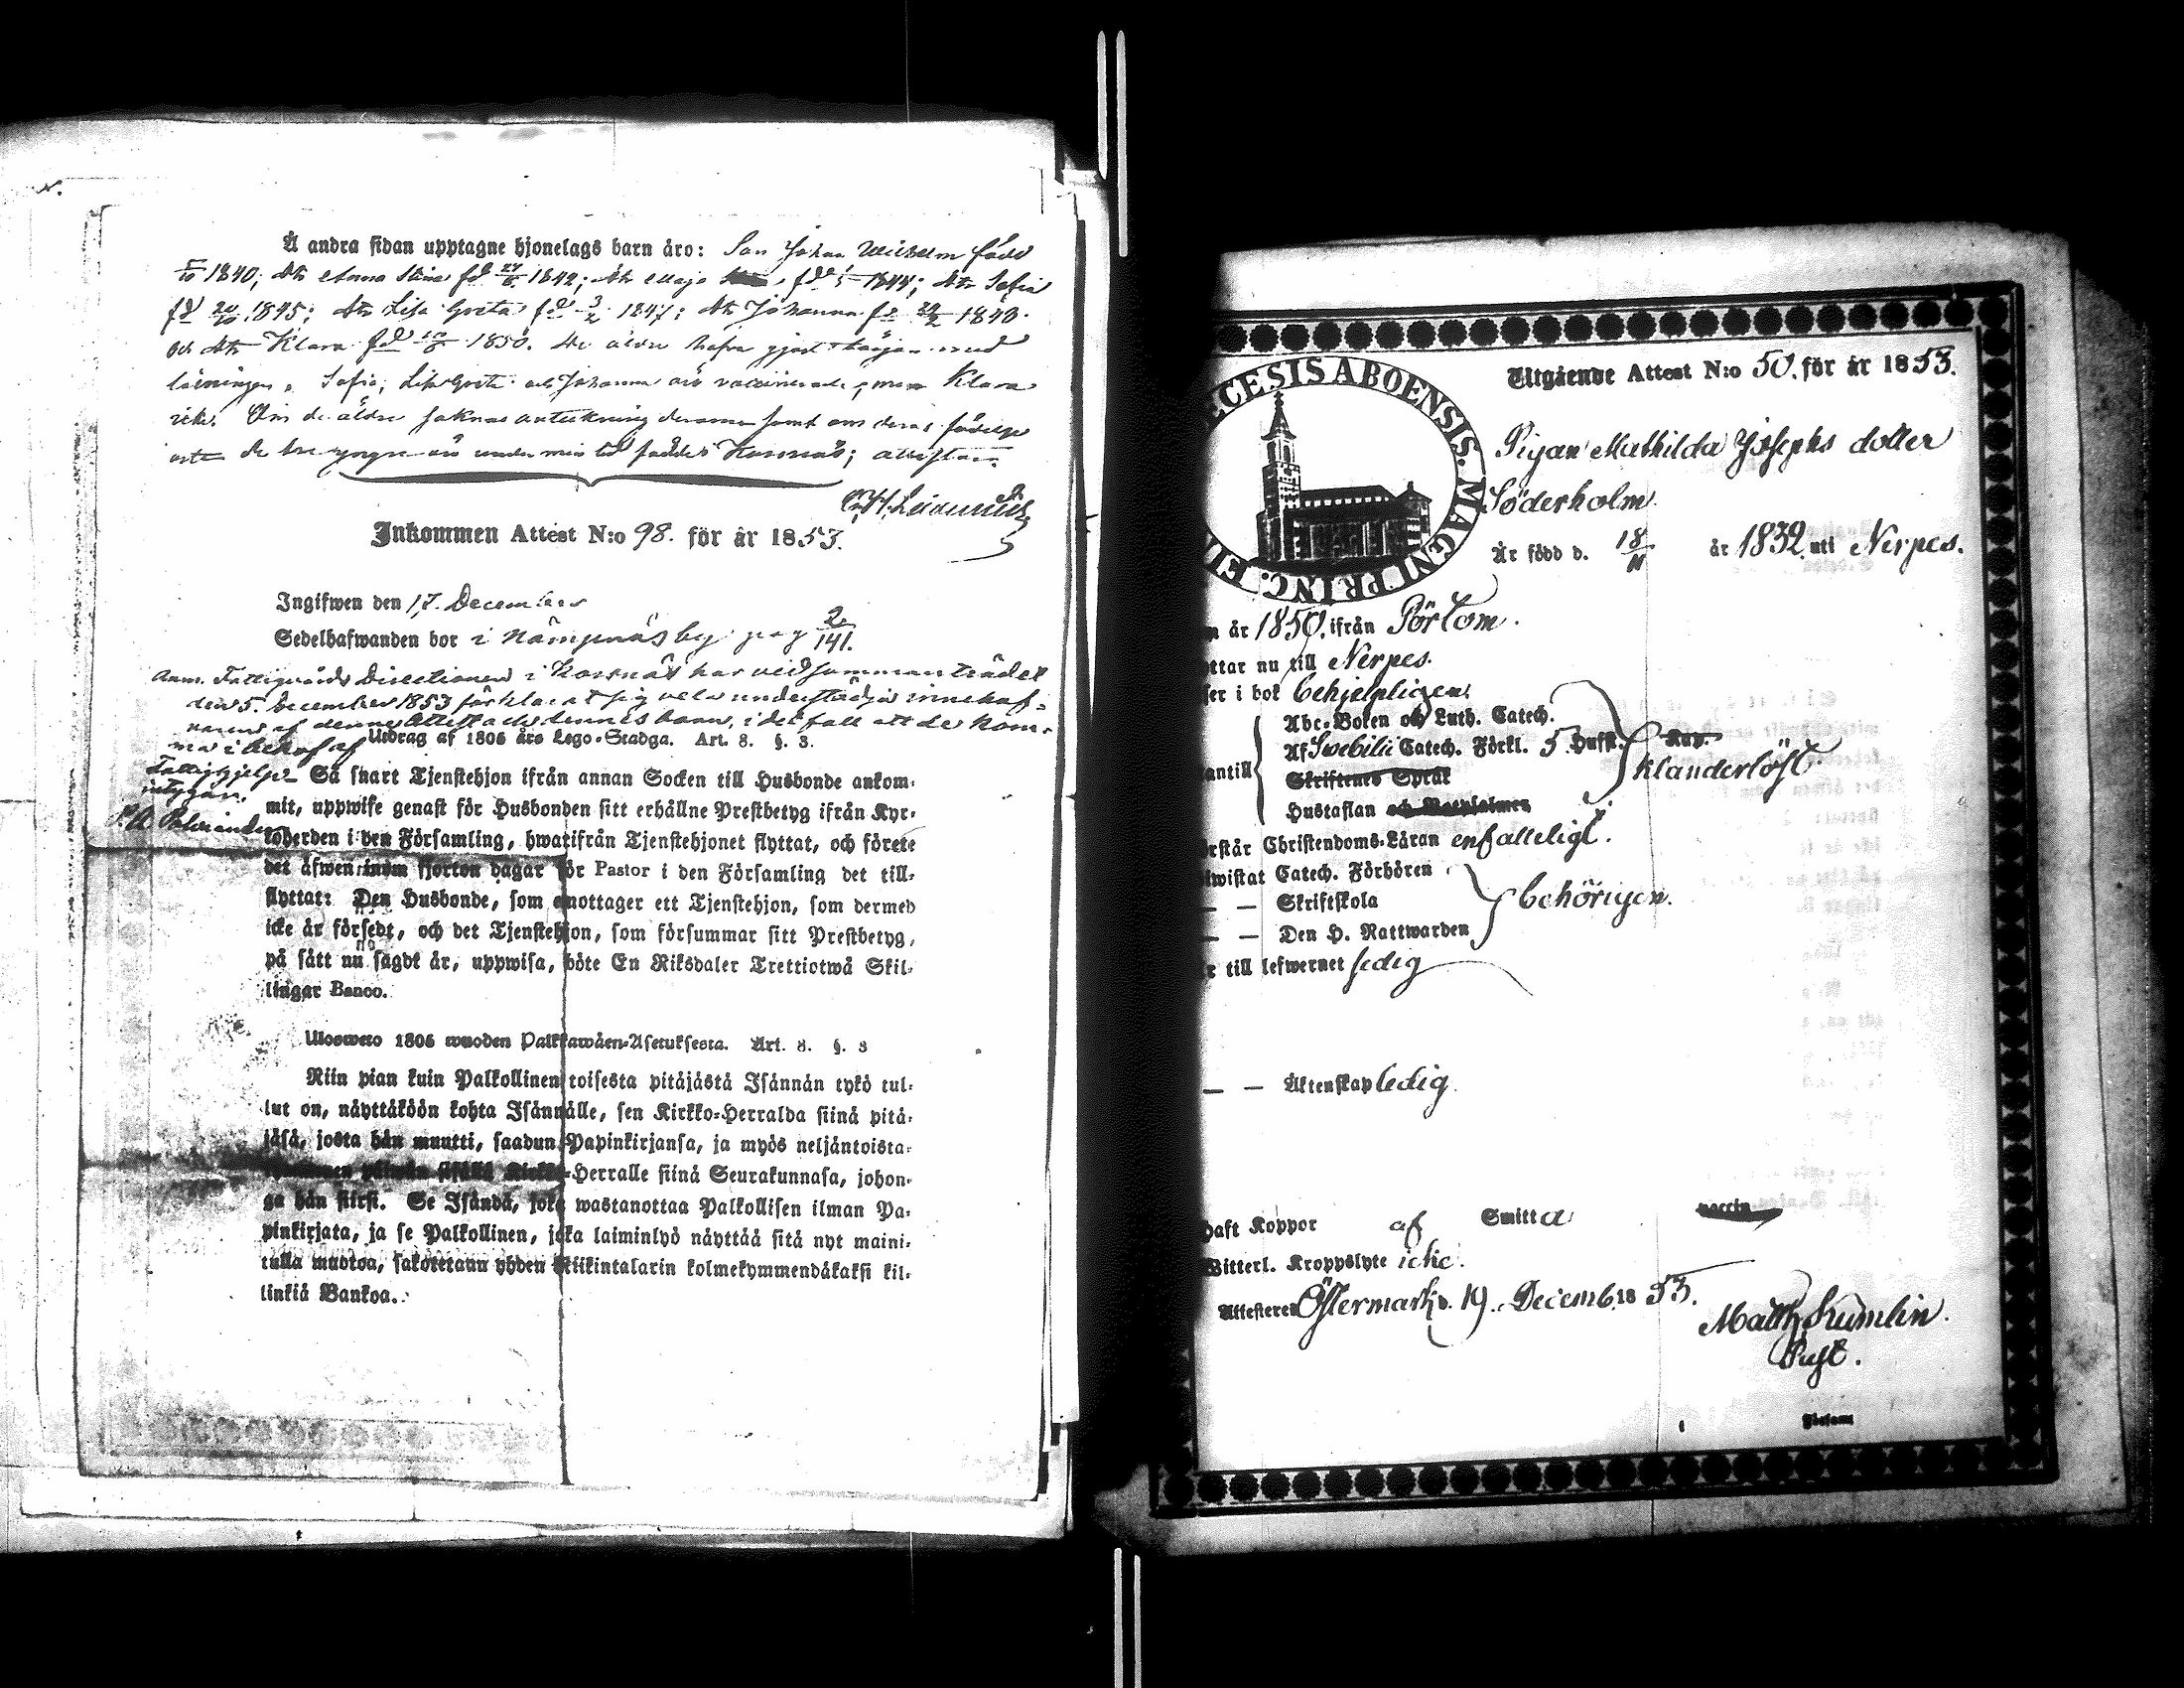 Å andra sidan upptagne hjonelags barn äro: Son Johan Wilhelm född
1840; dtr Anna Stina fd 1842; dtr Maja fd 1844; dtr Sofia
fd 24/10 1845; dtr Lisa Greta fd 3/2 1847; dtr Johanna fd
och dtr Klara fd 1850. De äldre hafva gjort början med
läsningen. Sofia, Lisa Greta och Johanna äro vaccinerade, men Klara
icke. Om de äldre saknas anteckning derom samt om deras födelse
ort de tre yngre äro under min tid födde i Korsnäs; attesterar
Inkommen Attest N:o 98. för år 1853.
Ingifwen den 17. December
Sedelhafwanden bor i Nämpnäs by pag 2/141.
Anm. Fattigvårds Directionen i Korsnäs har vid sammanträdet
den 5. December 1853 förklarat sig vela understödja innehaf-
varen af denna Attest och dennes barn, i det fall att de kom-
ma i behof af
Fattighjelp
intygar.
Utdrag af 1805 års Lego-Stadga. Art. 8. §. 3.
Så snart Tjenstehjon ifrån annan Socken till Husbonde ankom-
mit, uppwise genast för Husbonden sitt erhållne Prestbetyg ifrån Kyr-
koherden i den Församling, hwarifrån Tjenstehjonet flyttat, och förete
det äfwen inom fjorton dagar för Pastor i den Församling det till-
flyttat: Den Husbonde, som emottager ett Tjenstehjon, som dermed
icke är försedt, och det Tjenstehjon, som försummar sitt Prestbetyg,
på sätt nu sagdt är, uppwisa, böte En Riksdaler Trettiotwå Skil-
lingar Banco.
Uloswето 1805 wuoden Palkkawäen-Asetuksesta. Art. 8. §. 3
Niin pian kuin Palkollinen toisesta pitäjästä Isännän tykö tul-
lut on, näyttäköön kohta Isännälle, sen Kirkko-Herralda siinä pitä-
jäsä, josta hän muutti, saadun Papinkirjansa, ja myös neljäntoista-
päiwän sisällä Kirkko-Herralle siinä Seurakunnasa, johon-
ga hän siirst. Se Isändä, joka wastanottaa Palkollisen ilman Pa-
pinkirjata, ja se Palkollinen, joka laiminlyö näyttää sitä nyt maini-
tulla muotoa, sakotetaan yhden Riikintalarin kolmekymmendäkaksi kil-
linkiä Bankoa.
CESIS ABOENSIS. MAGNI PRINC. FIN
Utgående Attest N:o 50. för år 1853.
Pigan Mathilda Josephs dotter
Söderholm.
Är född d. 18/11 år 1832 uti Nerpes.
år 1850. ifrån Pörtom.
ttar nu till Nerpes.
ser i bok behjelpligen;
Abc-Boken och Luth. Catech.
Af Svebilii Catech. Förkl. 5. Hufst. Kap.
antill Skriftenes Språk klanderlöst.
Hustaflan och Botpsalmer
rstår Christendoms-Läran enfalleligt.
iwistat Catech. Förhören
— — Skriftskola behörigen.
— — Den H. Nattwarden
r till lefwernet sedig
— — Äktenskap ledig.
haft Koppor af Smitta vaccin
Witterl. Kroppslyte icke.
Attesteres Östermark d. 19. Decemb. 1853.
Matth Kumlin.
Past.